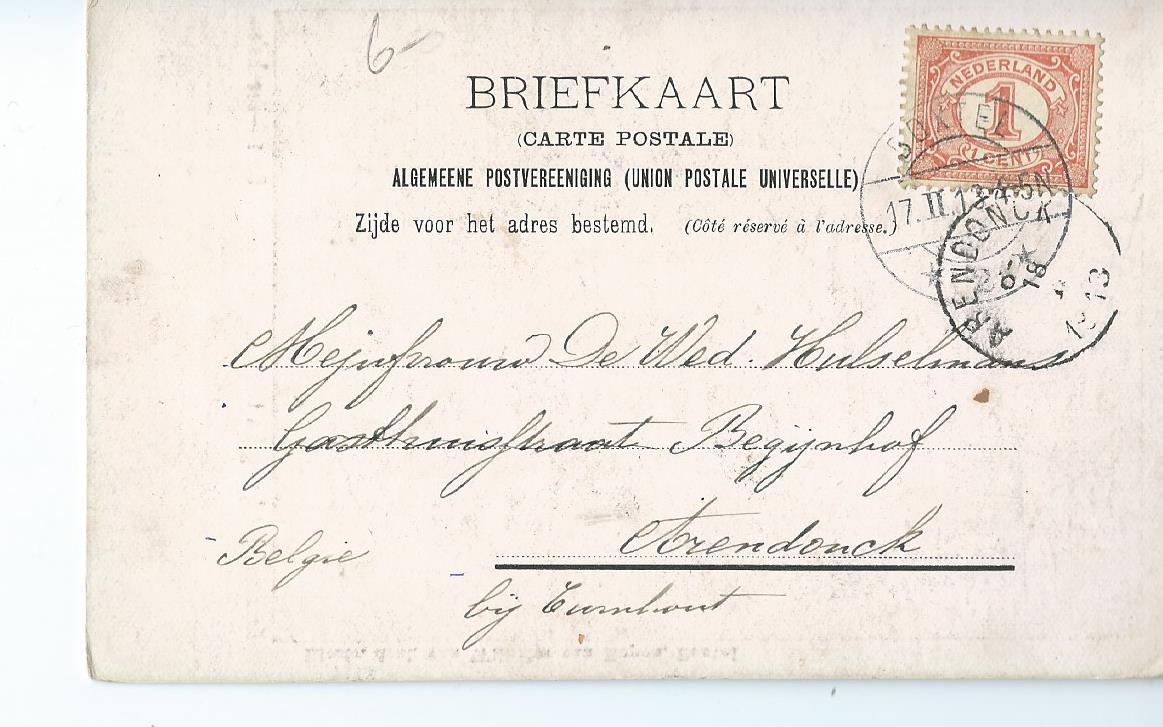 6-
BRIEFKAART
(CARTE POSTALE)
ALGEMEENE POSTVEREENIGING (UNION POSTALE UNIVERSELLE)
Zijde voor het adres bestemd. (Côté réservé à l'adresse.)
NEDERLAND
1
CENT
BOXTEL
17.II.13
ARENDONCK
18
1913
Mejufvrouw De Wed. Hulselmans
Gasthuisstraat Begijnhof
Arendonck
België
bij Turnhout